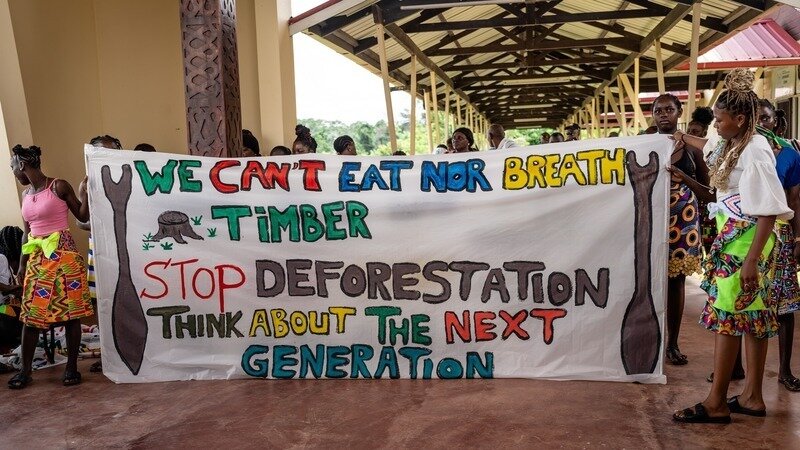 WE CAN'T EAT NOR BREATH
TiMBER
STOP DEFORESTATION
THINK ABOUT THE NEXT
GENERATION